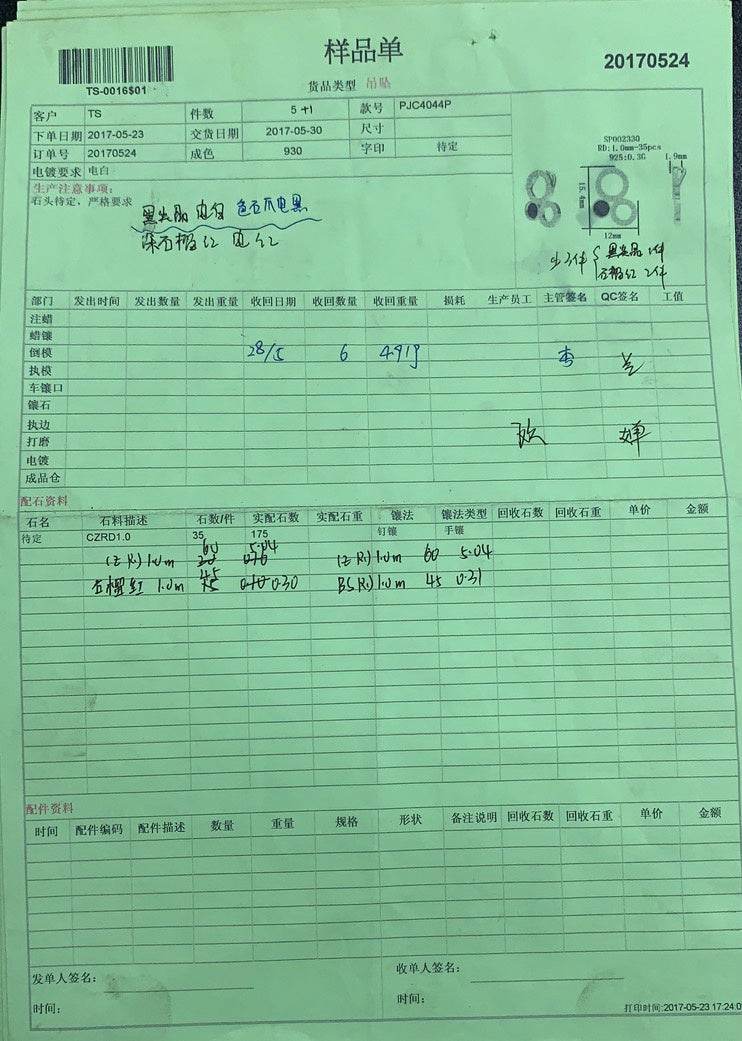 样品单
20170524
TS-0016$01
货品类型 吊坠
客户 TS 件数 5 +1 款号 PJC4044P
下单日期 2017-05-23 交货日期 2017-05-30 尺寸
订单号 20170524 成色 930 字印 待定
电镀要求 电白
生产注意事项:
石头待定，严格要求
SP002330
RD:1.0mm-35pcs
925:0.3G
1.9mm
15.4mm
12mm
部门 发出时间 发出数量 发出重量 收回日期 收回数量 收回重量 损耗 生产员工 主管签名 QC签名 工值
注蜡
蜡镶
倒模 28/5 6 4.91g
执模
车镶口
镶石
执边
打磨
电镀
成品仓
配石资料
石名 石料描述 石数/件 实配石数 实配石重 镶法 镶法类型 回收石数 回收石重 单价 金额
待定 CZRD1.0 35 175 钉镶 手镶
60 5.04
1.0m 1.0m 60 5.04
45
石榴红 1.0m 0.30 1.0m 45 0.31
配件资料
时间 配件编码 配件描述 数量 重量 规格 形状 备注说明 回收石数 回收石重 单价 金额
发单人签名: 收单人签名:
时间: 时间:
打印时间:2017-05-23 17:24:0